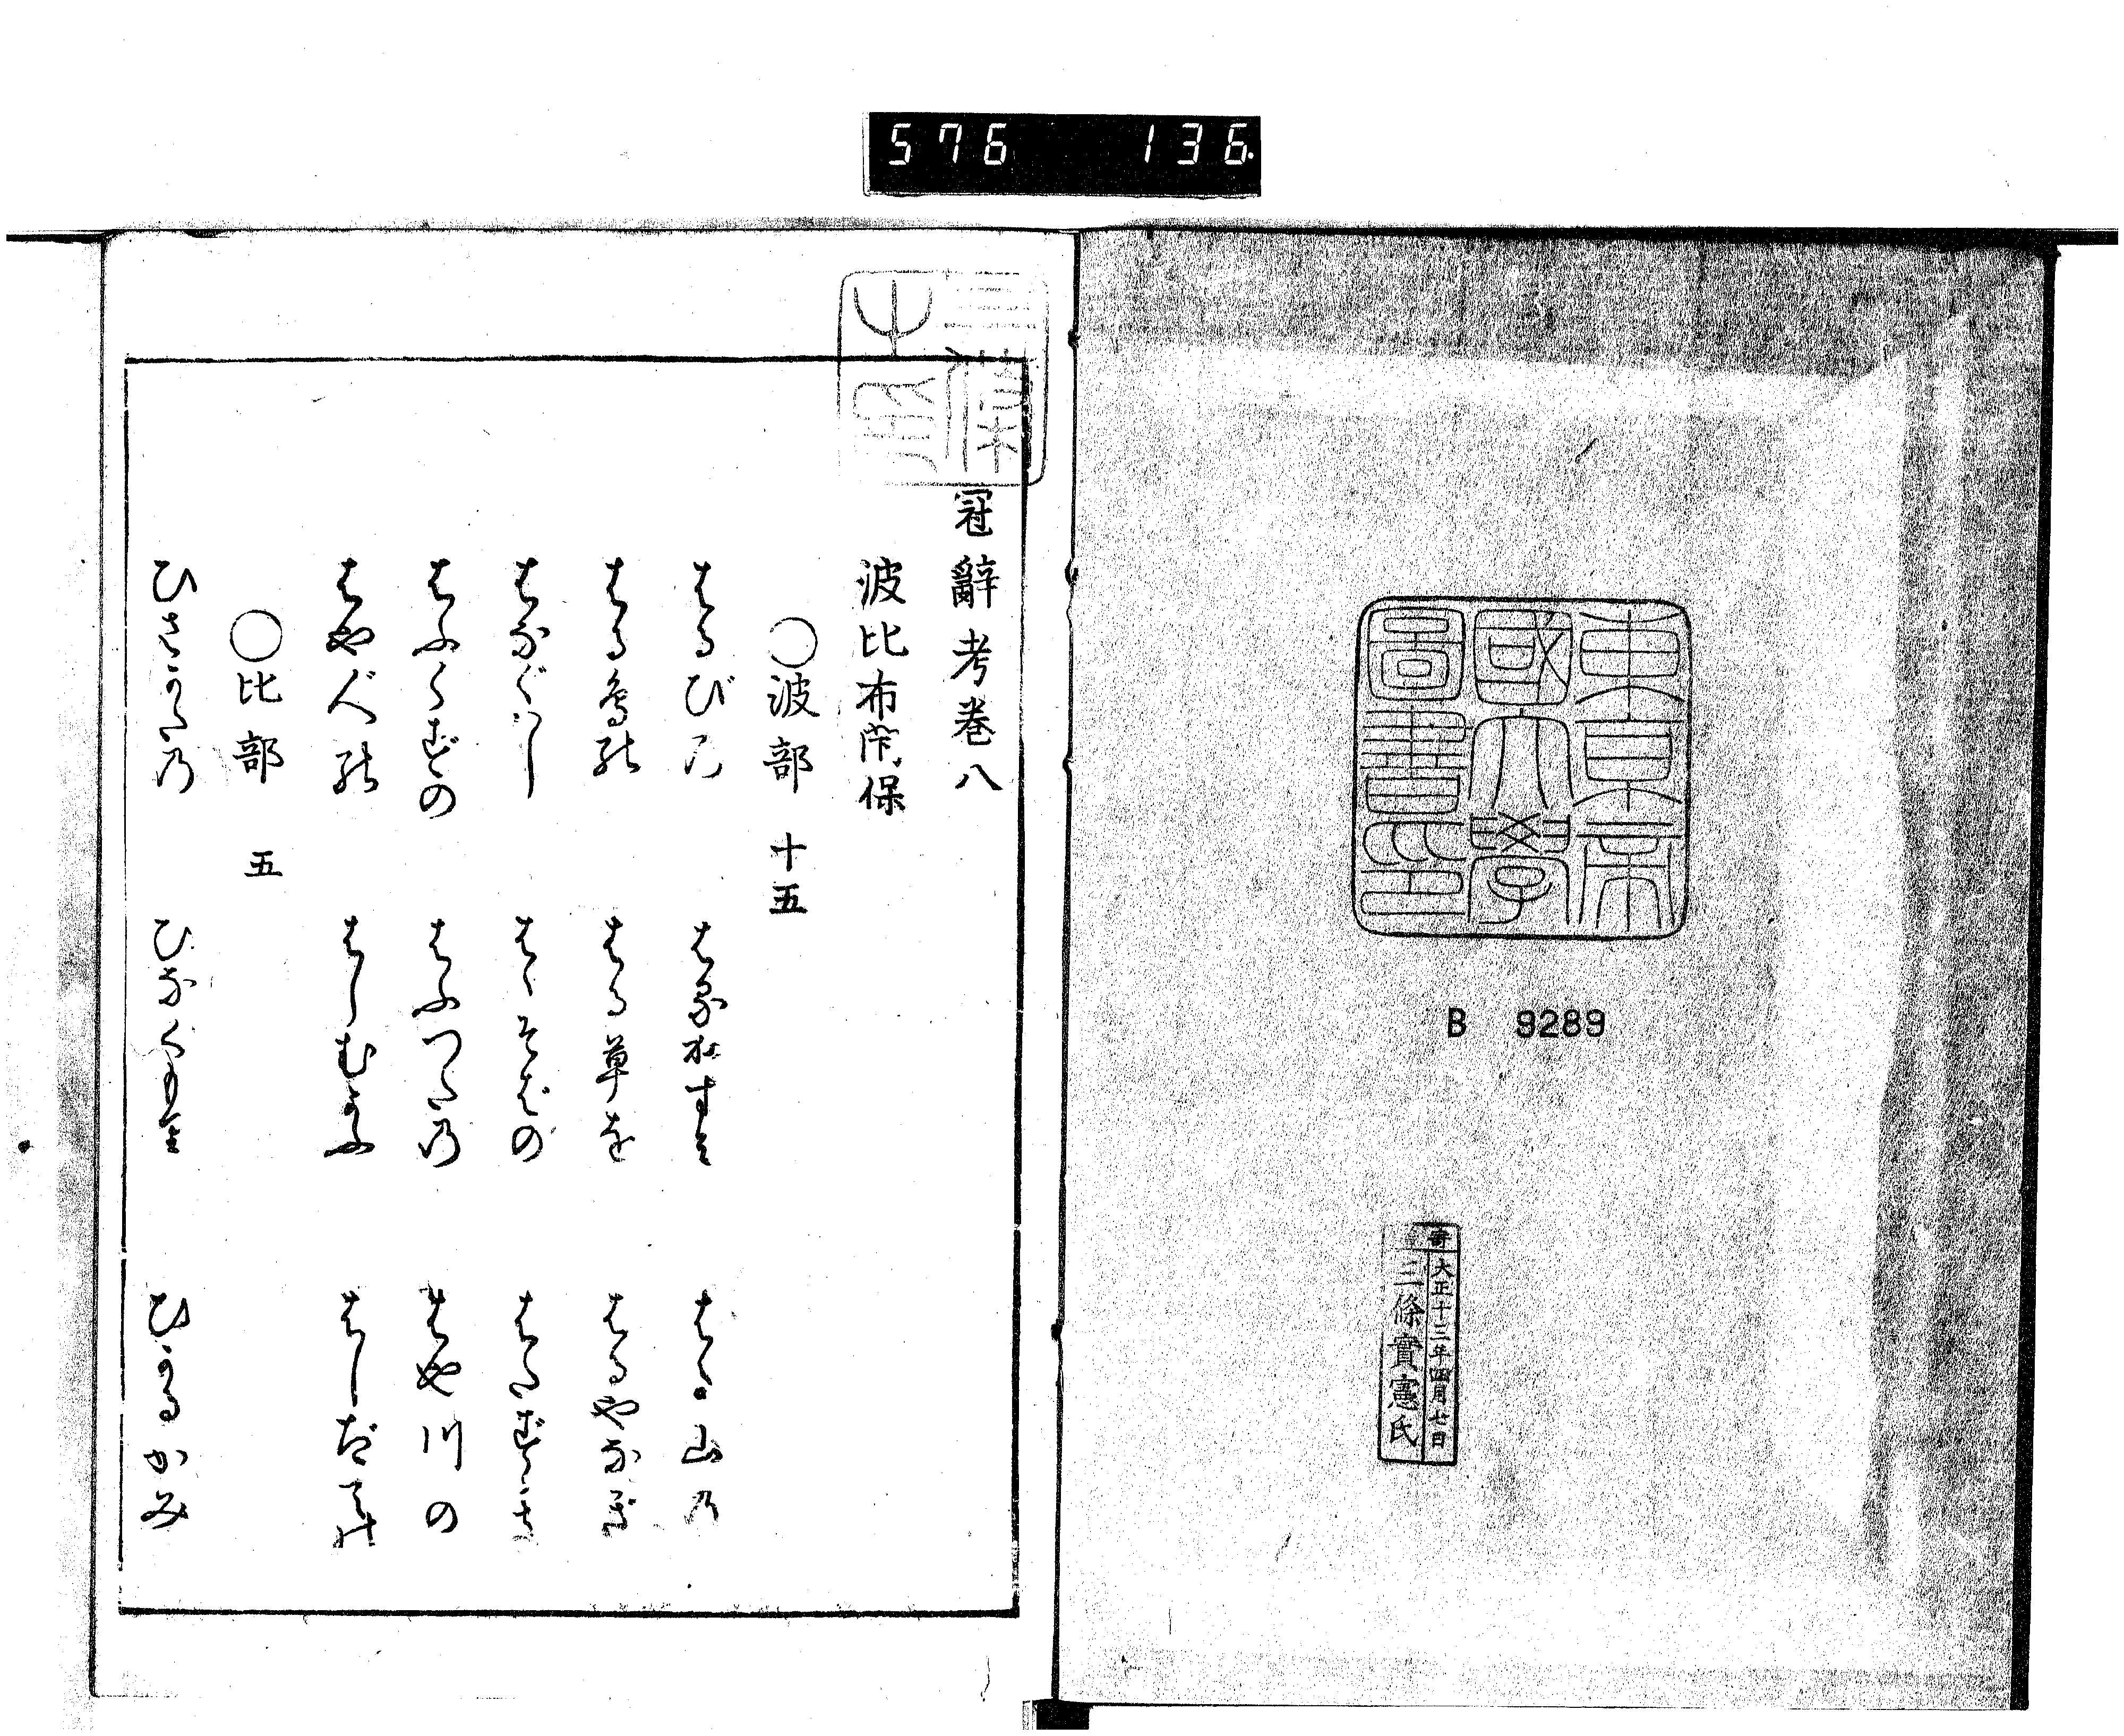 576 136
東京帝
國大學
圖書印
B 9289
寄
大正十三年四月七日
三條實憲氏
冠辭考卷八
波比布閇保
○波部 十五
はるびの はる山の
はる鳥の はる草を はるやなぎ
はなぐはし はゝそばの はたすゝき
はふくずの はふつたの はや川の
はや人の はしむかふ はしたての
○比部 五
ひさかたの ひなくもり ひかるかみ